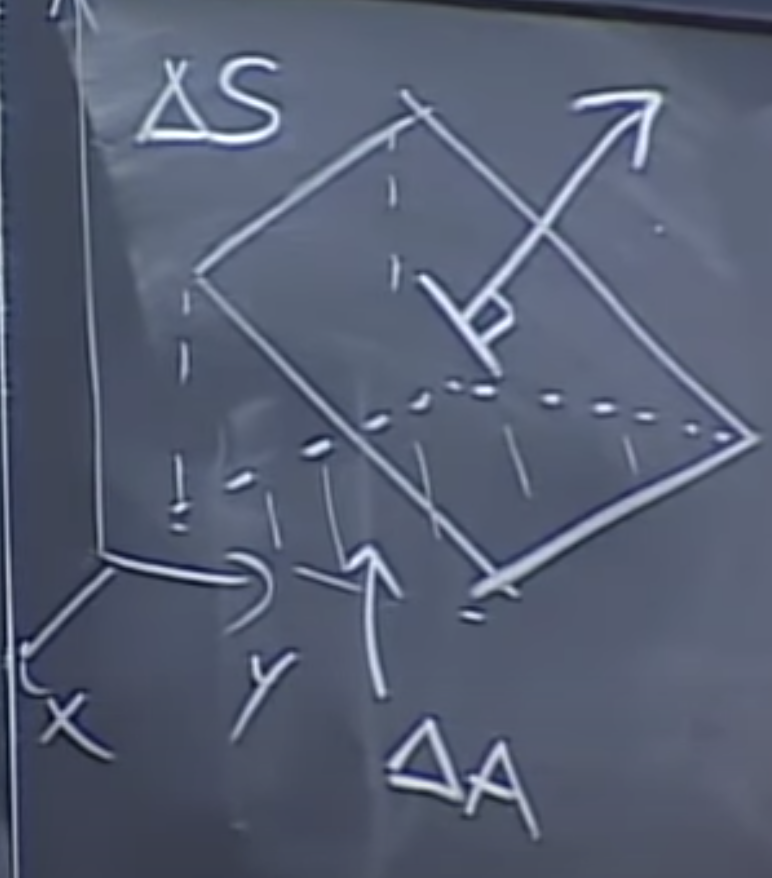 ΔS
x
y
ΔA